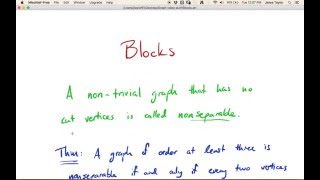 Blocks
A non-trivial graph that has no
cut vertices is called nonseparable.
Thm: A graph of order at least three is
nonseparable if and only if every two vertices